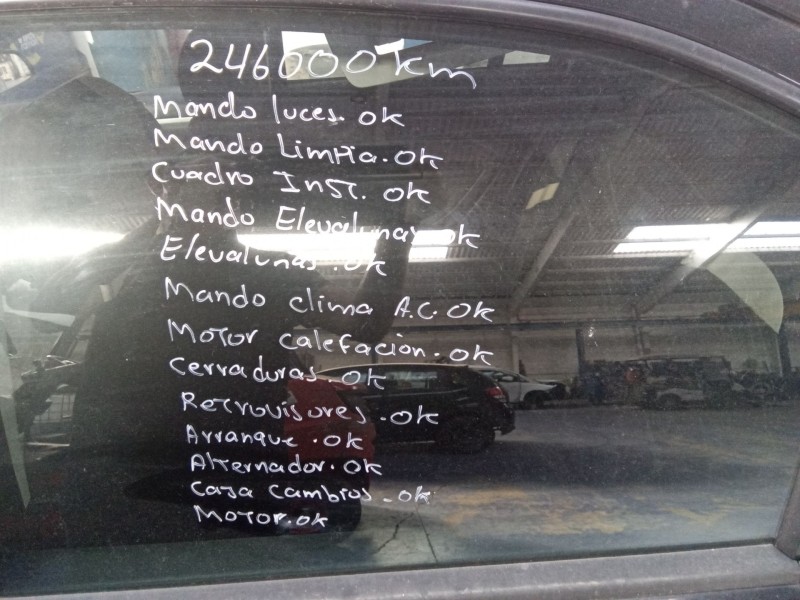 246000 km
Mando luces. ok
Mando Limpia. ok
Cuadro Inst. ok
Mando Elevalunas ok
Elevalunas. ok
Mando clima A.C. ok
Motor calefacion. ok
Cerraduras. ok
Retrovisores. ok
Arranque. ok
Alternador. ok
Caja Cambios. ok
Motor. ok